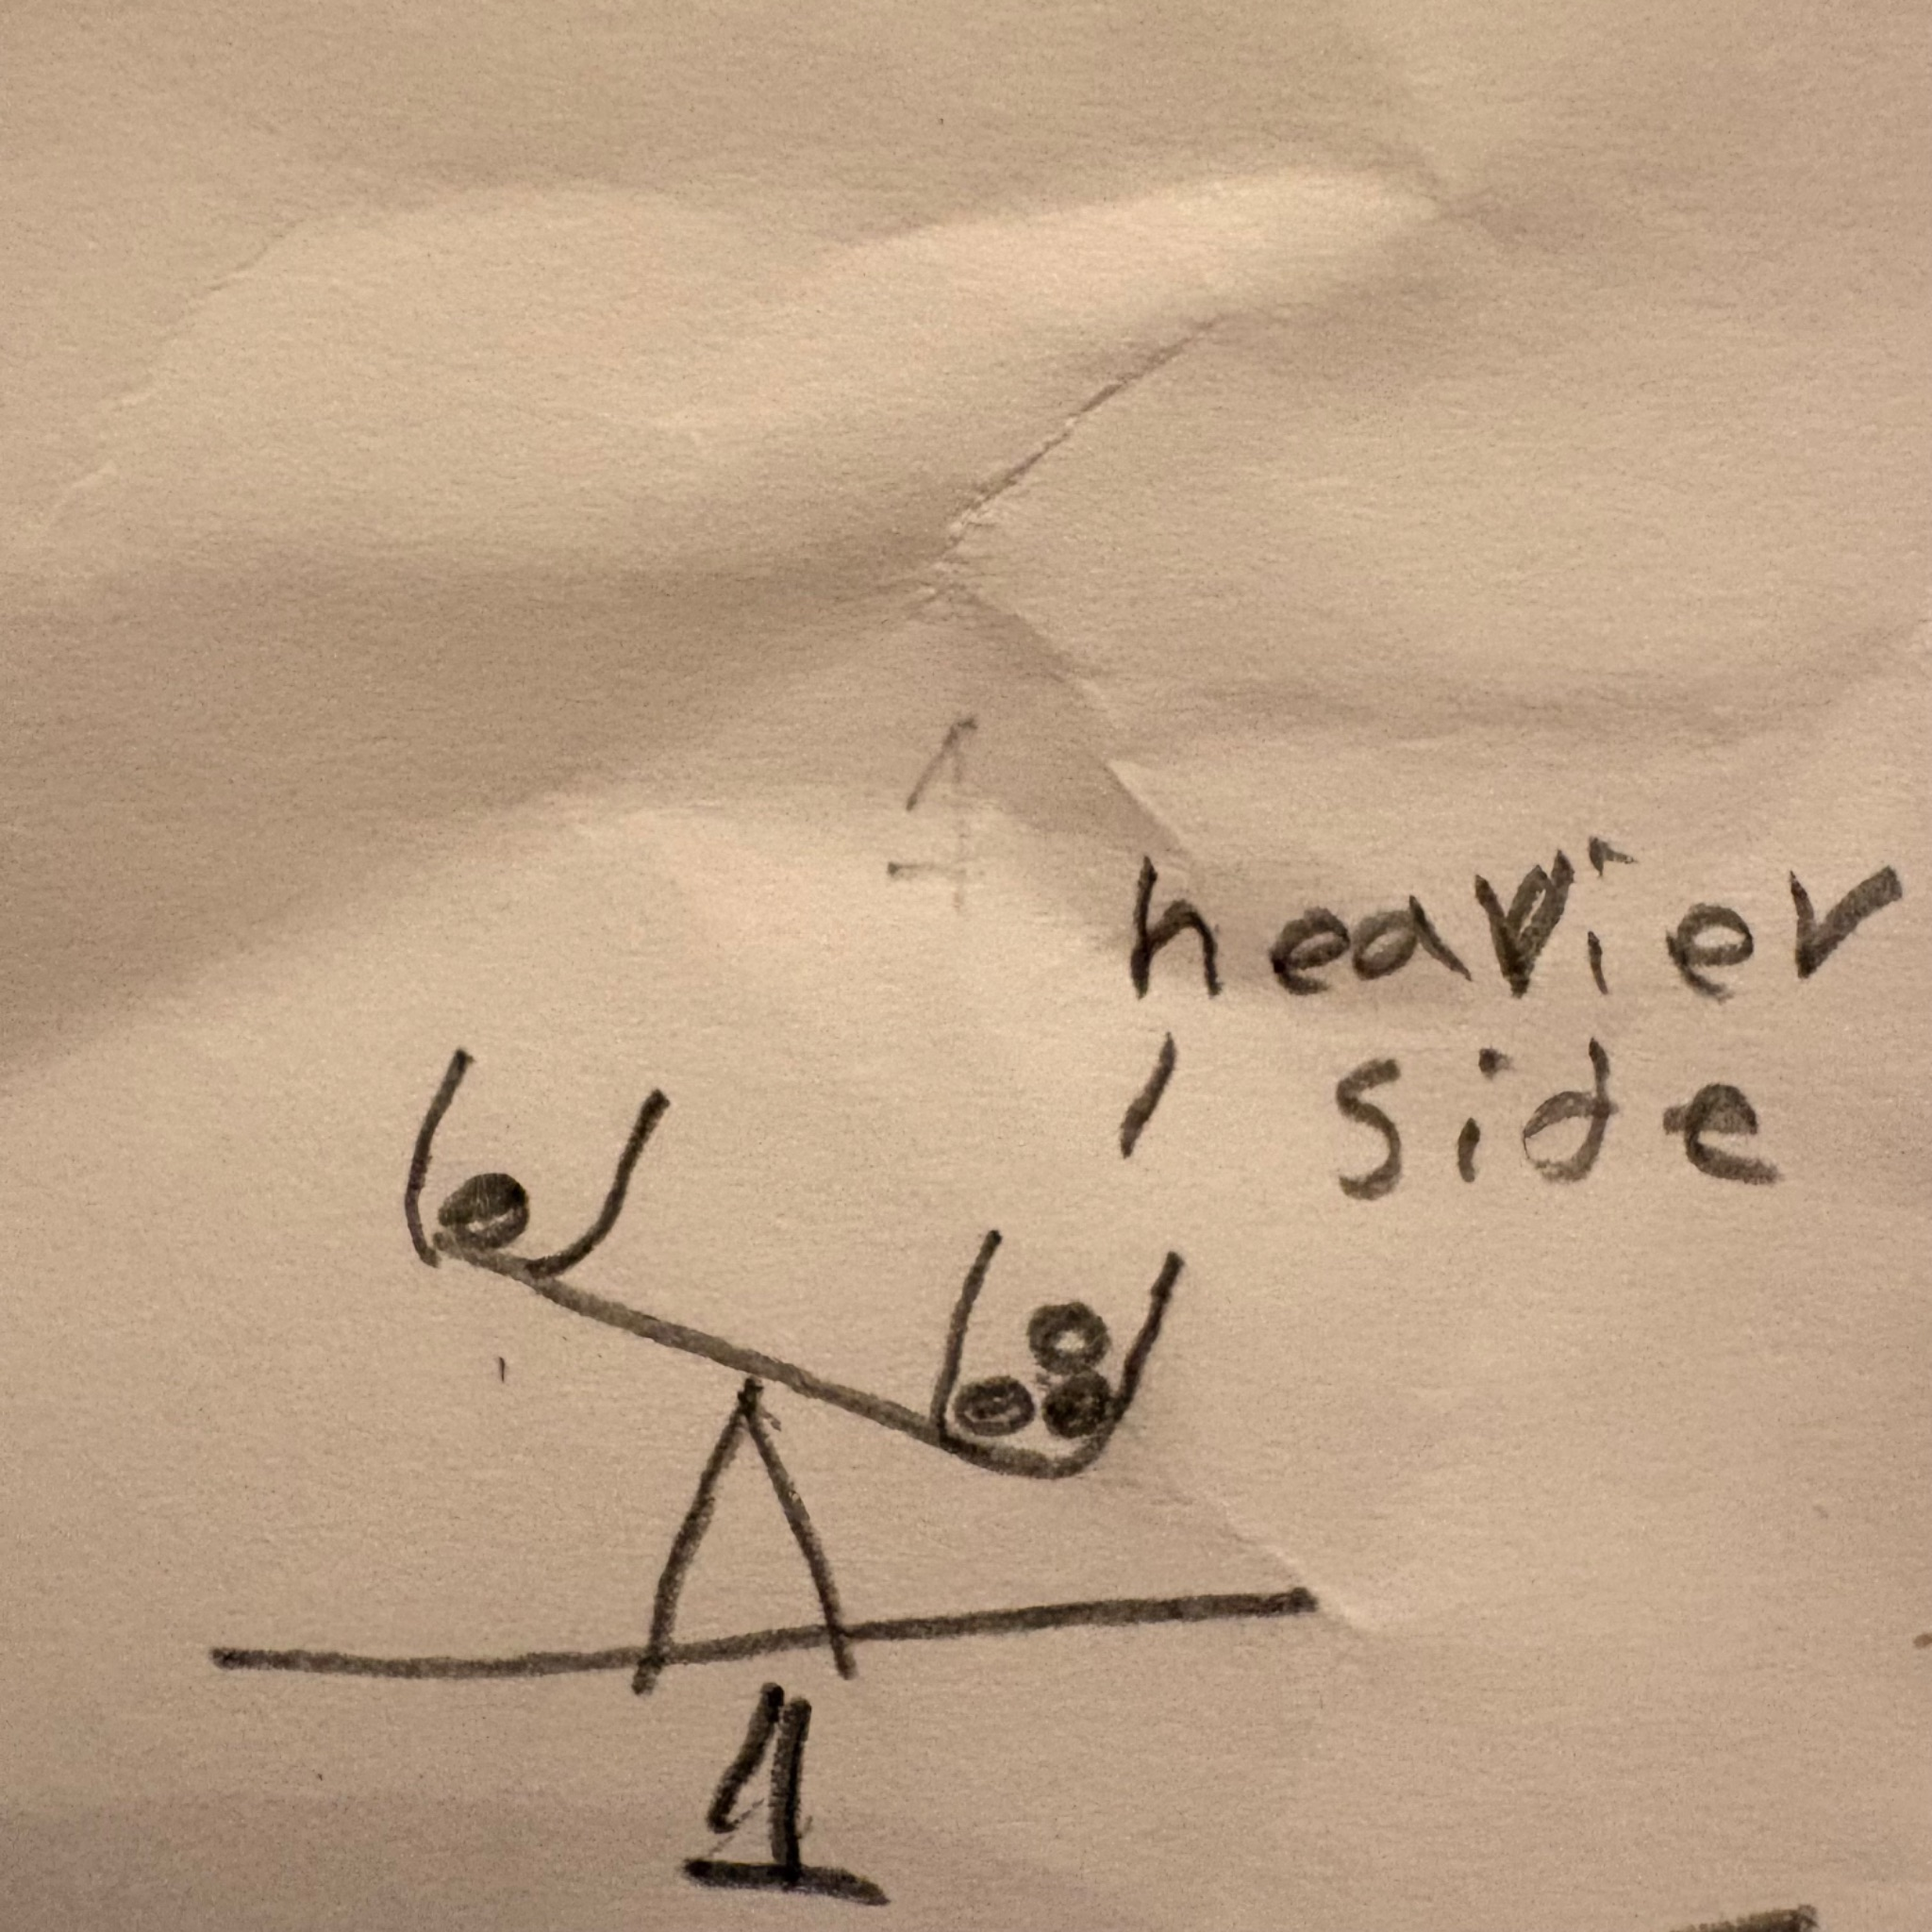 1
heavier
side
1